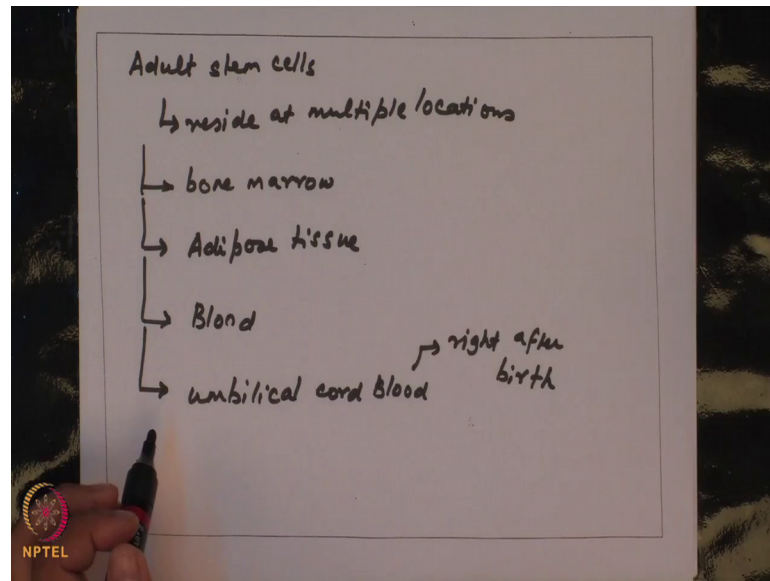 Adult stem cells
↳ reside at multiple locations
→ bone marrow
→ Adipose tissue
→ Blood
→ umbilical cord Blood → right after
birth
NPTEL